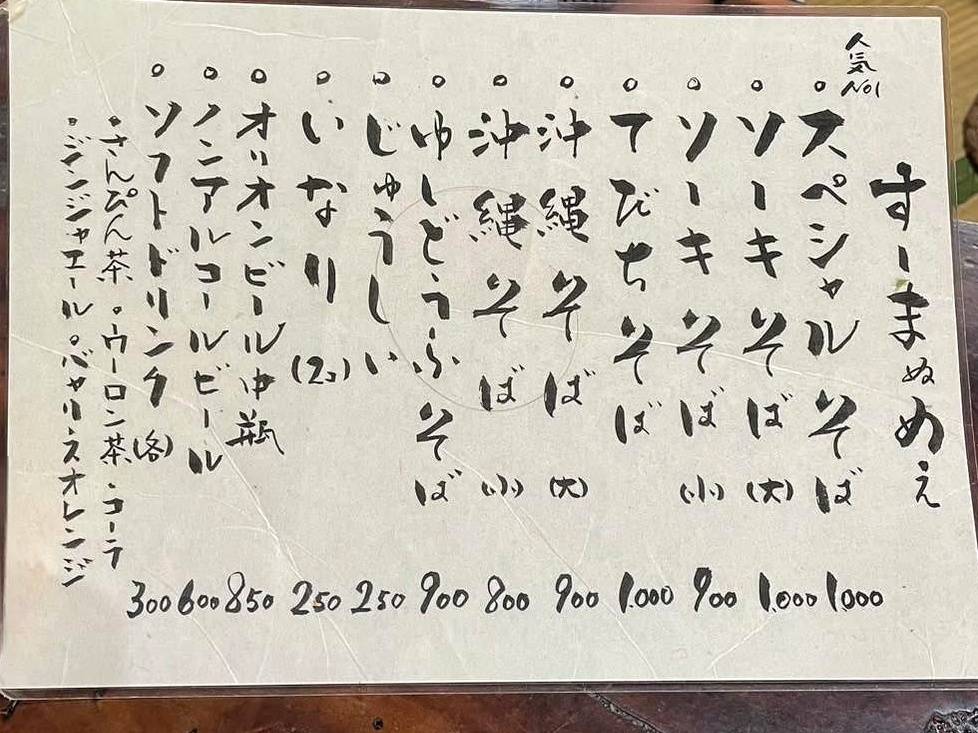 すーまぬめぇ
人気No1
。スペシャルそば 1.000
。ソーキそば(大) 1.000
。ソーキそば(小) 900
。てびちそば 1.000
。沖縄そば(大) 900
。沖縄そば(小) 800
。ゆしどうふそば 900
。じゅうしぃ 250
。いなり(2コ) 250
。オリオンビール中瓶 850
。ノンアルコールビール 600
。ソフトドリンク(各) 300
・さんぴん茶・ウーロン茶・コーラ
・ジンジャエール・バャリースオレンジ